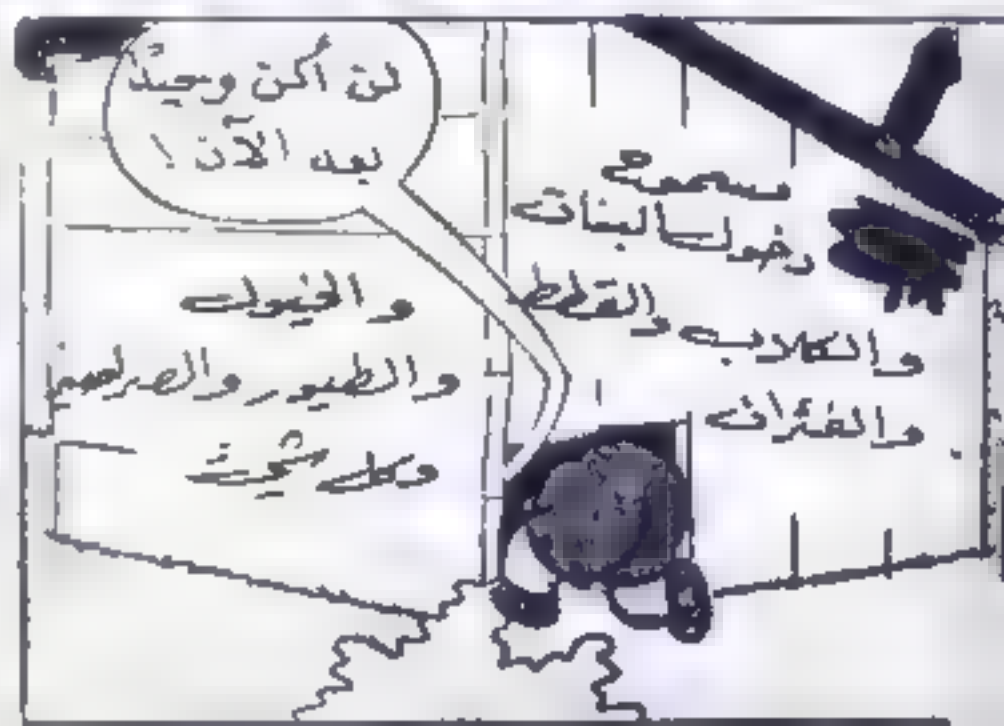 لن أكن وحيدًا
بعد الآن !
مسموح
دخول البنات
والكلاب والقطط
والفئران
والفيول
والطيور والصراصير
وكل شيء